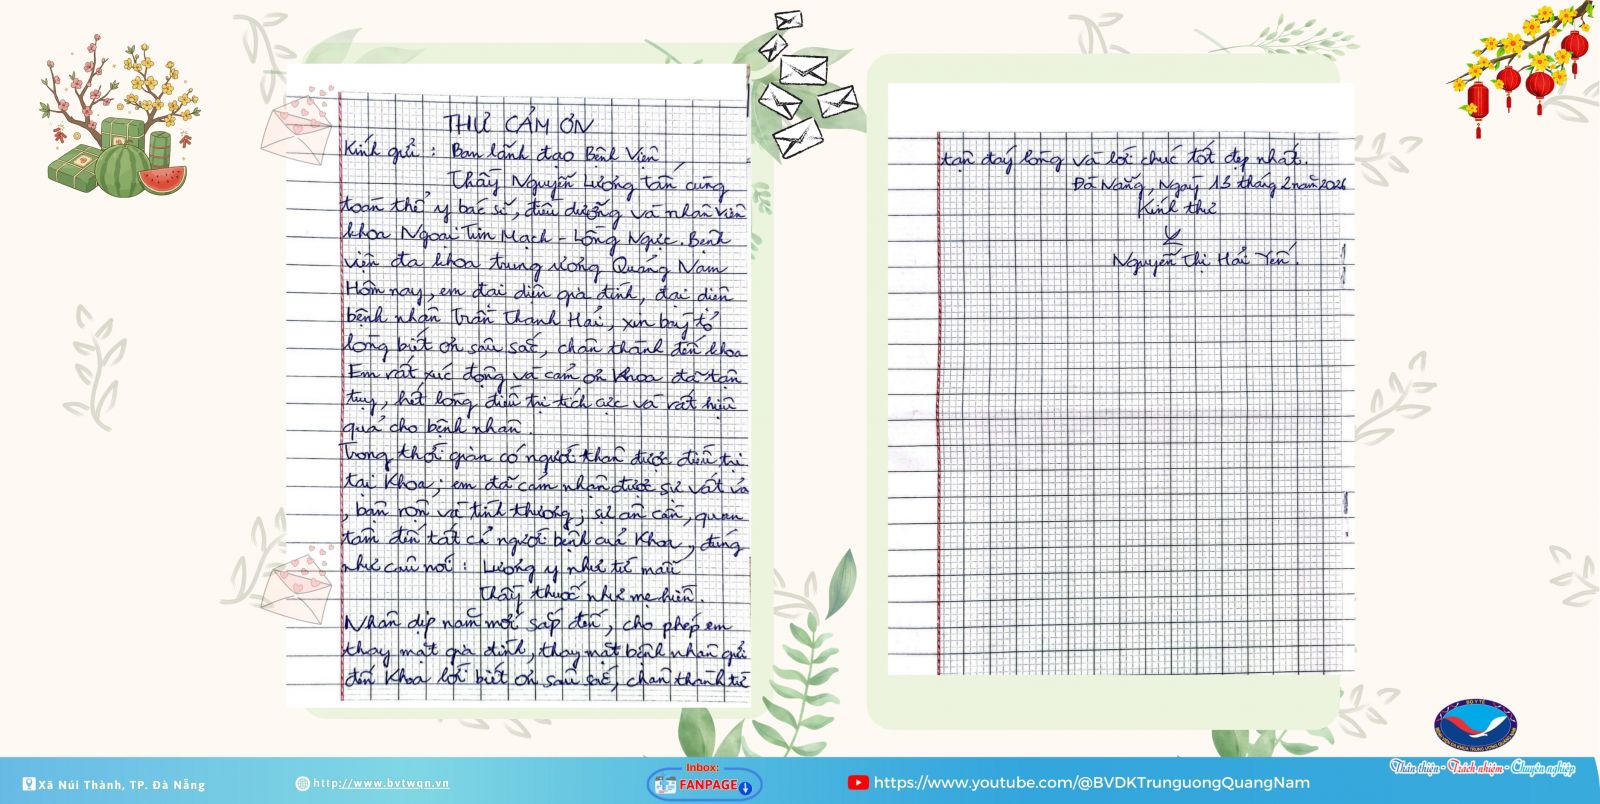 THƯ CẢM ƠN
Kính gửi : Ban lãnh đạo Bệnh Viện
Thầy Nguyễn Lương Tấn cùng
toàn thể y bác sĩ, điều dưỡng và nhân viên
khoa Ngoại Tim Mạch - Lồng Ngực. Bệnh
viện đa khoa trung ương Quảng Nam
Hôm nay, em đại diện gia đình, đại diện
bệnh nhân Trần Thanh Hải, xin bày tỏ
lòng biết ơn sâu sắc, chân thành đến khoa
Em rất xúc động và cảm ơn khoa đã tận
tụy, hết lòng điều trị tích cực và rất hiệu
quả cho bệnh nhân.
Trong thời gian có người thân được điều trị
tại Khoa; em đã cảm nhận được sự vất vả
, bận rộn và tình thương; sự ân cần, quan
tâm đến tất cả người bệnh của Khoa, đúng
như câu nói : Lương y như từ mẫu
Thầy thuốc như mẹ hiền.
Nhân dịp năm mới sắp đến, cho phép em
thay mặt gia đình, thay mặt bệnh nhân gửi
đến Khoa lời biết ơn sâu sắc, chân thành từ
tận đáy lòng và lời chúc tốt đẹp nhất.
Đà Nẵng, Ngày 13 tháng 2 năm 2026
Kính thư
Nguyễn Thị Hải Yến.
BỘ Y TẾ
BỆNH VIỆN ĐA KHOA TRUNG ƯƠNG QUẢNG NAM
Thân thiện - Trách nhiệm - Chuyên nghiệp
Xã Núi Thành, TP. Đà Nẵng
http://www.bvtwqn.vn
Inbox:
FANPAGE
https://www.youtube.com/@BVDKTrunguongQuangNam